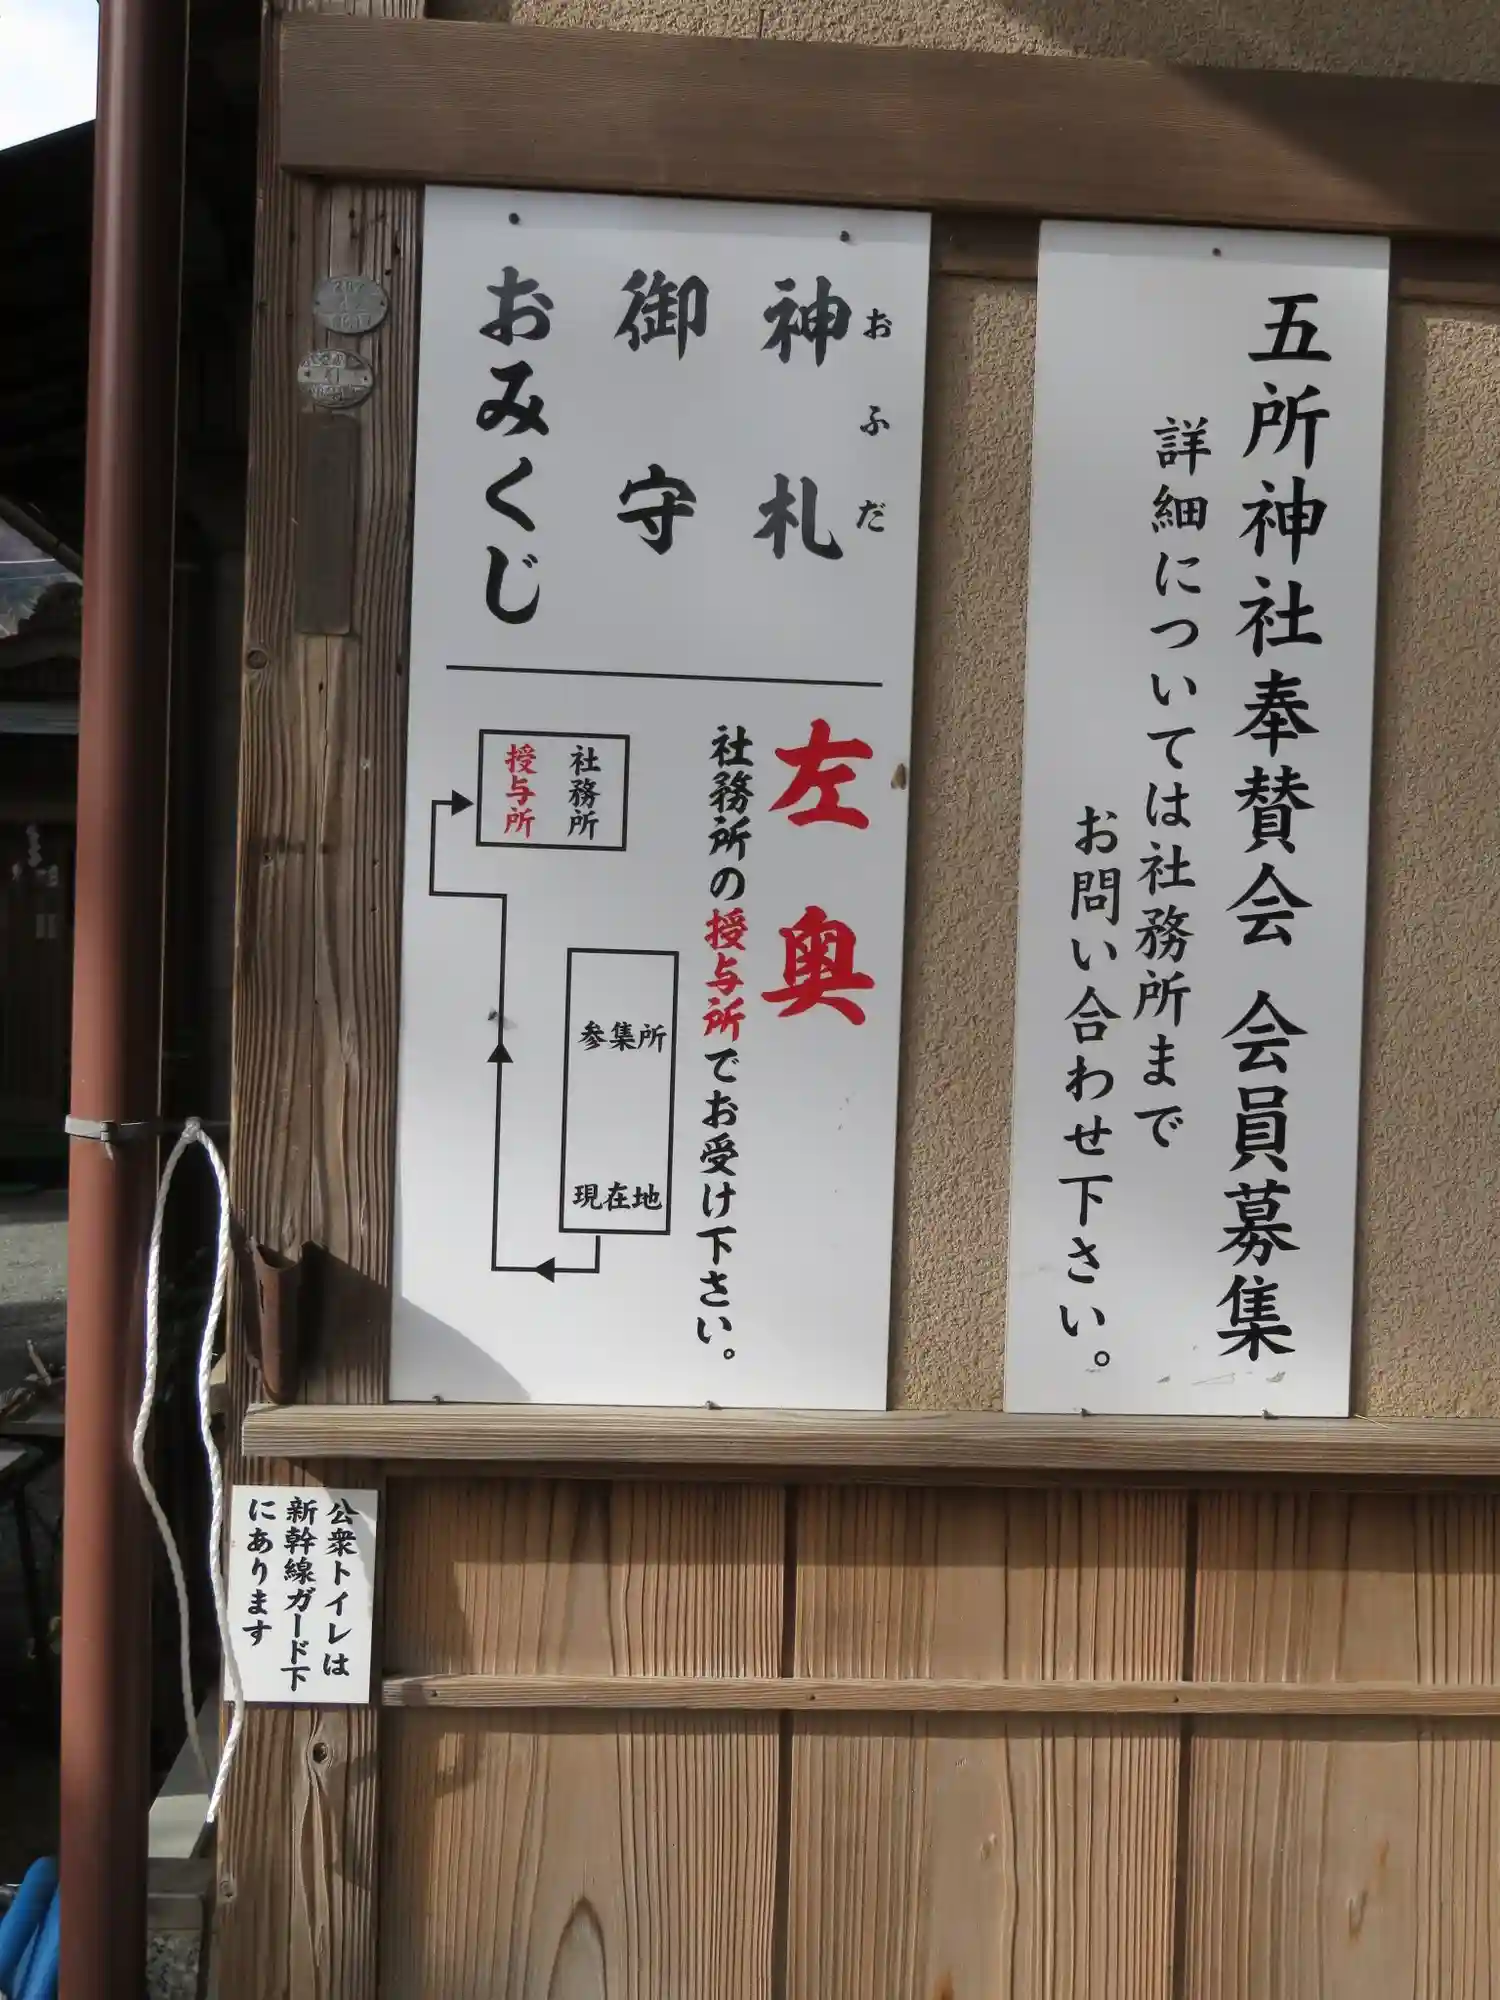 五所神社奉賛会 会員募集
詳細については社務所まで
お問い合わせ下さい。
おふだ
神札
御守
おみくじ
左奥
社務所の授与所でお受け下さい。
社務所
授与所
参集所
現在地
公衆トイレは
新幹線ガード下
にあります